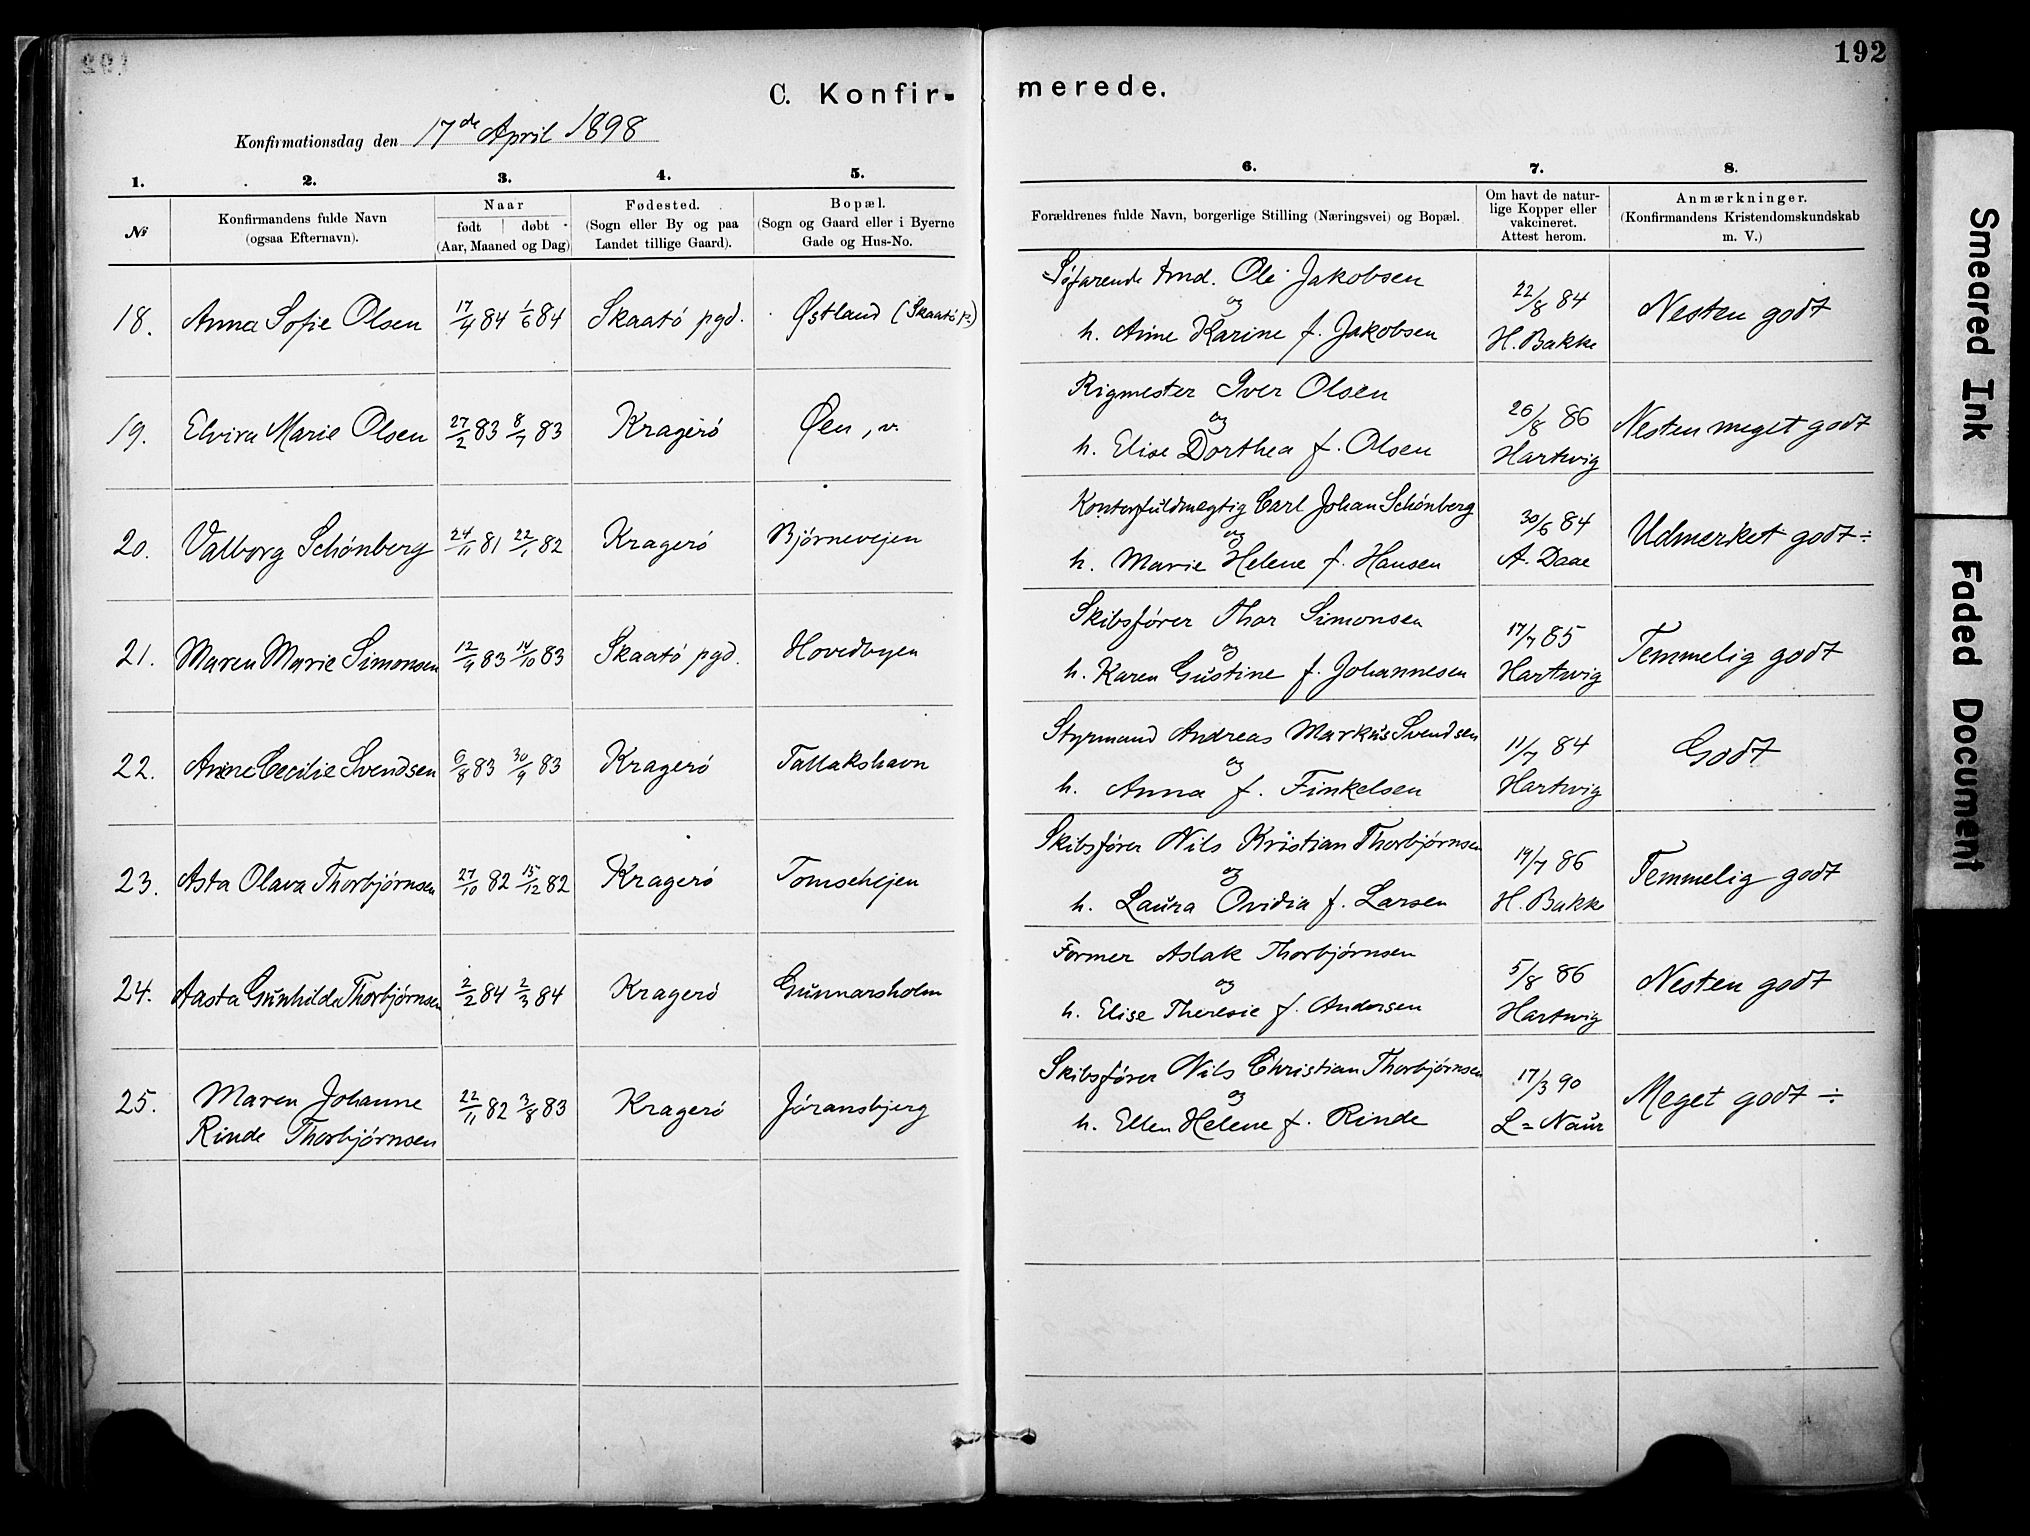 192
C. Konfirmerede.
Konfirmationsdag den 17de April 1898
1. 2. 3. 4. 5. 6. 7. 8.
No
Konfirmandens fulde Navn
(ogsaa Efternavn).
Naar
født døbt
(Aar, Maaned og Dag)
Fødested.
(Sogn eller By og paa
Landet tillige Gaard).
Bopæl.
(Sogn og Gaard eller i Byerne
Gade og Hus-No.
Forældrenes fulde Navn, borgerlige Stilling (Næringsvei) og Bopæl.
Om havt de natur-
lige Kopper eller
vakcineret.
Attest herom.
Anmærkninger.
(Konfirmandens Kristendomskundskab
m. V.)
18. Anna Sofie Olsen 17/4 84 1/6 84 Skaatö pgd. Østland (Skaatö p.)
Søfarende Ole Jakobsen
og
h. Anne Karine f. Jakobsen
22/8 84
H. Bakke
Nesten godt
19. Elvira Marie Olsen 27/2 83 8/7 83 Kragerö Øen, v.
Rigmester Iver Olsen
og
h. Elise Dorthea f. Olsen
26/8 86
Hartwig
Nesten meget godt
20. Valborg Schönberg 24/11 81 22/1 82 Kragerö Björnevejen
Kontorfuldmegtig Carl Johan Schönberg
og
h. Marie Helene f. Hansen
30/6 84
A. Daae
Udmerket godt ÷
21. Maren Marie Simonsen 12/9 83 14/10 83 Skaatö pgd. Hovedbyen
Skibsförer Thor Simonsen
og
h. Karen Gustine f. Johannesen
17/7 85
Hartwig
Temmelig godt
22. Anne Cecilie Svendsen 6/8 83 30/9 83 Kragerö Tallakshavn
Styrmand Andreas Markus Svendsen
og
h. Anna f. Finkelsen
11/7 84
Hartwig
Godt
23. Asta Olava Thorbjørnsen 27/10 82 15/12 82 Kragerö Tomsehejen
Skibsfører Nils Kristian Thorbjørnsen
og
h. Laura Ovidia f. Larsen
19/7 86
H. Bakke
Temmelig godt
24. Aasta Gunhilda Thorbjørnsen 2/2 84 2/3 84 Kragerö Gunnarsholm
Former Aslak Thorbjørnsen
og
h. Elise Theresie f. Andersen
5/8 86
Hartwig
Nesten godt
25. Maren Johanne
Rinde Thorbjørnsen
22/11 82 3/8 83 Kragerö Jöransbjerg
Skibsfører Nils Christian Thorbjørnsen
og
h. Ellen Helene f. Rinde
17/3 90
L = Naur
Meget godt ÷
Smeared Ink
Faded Document